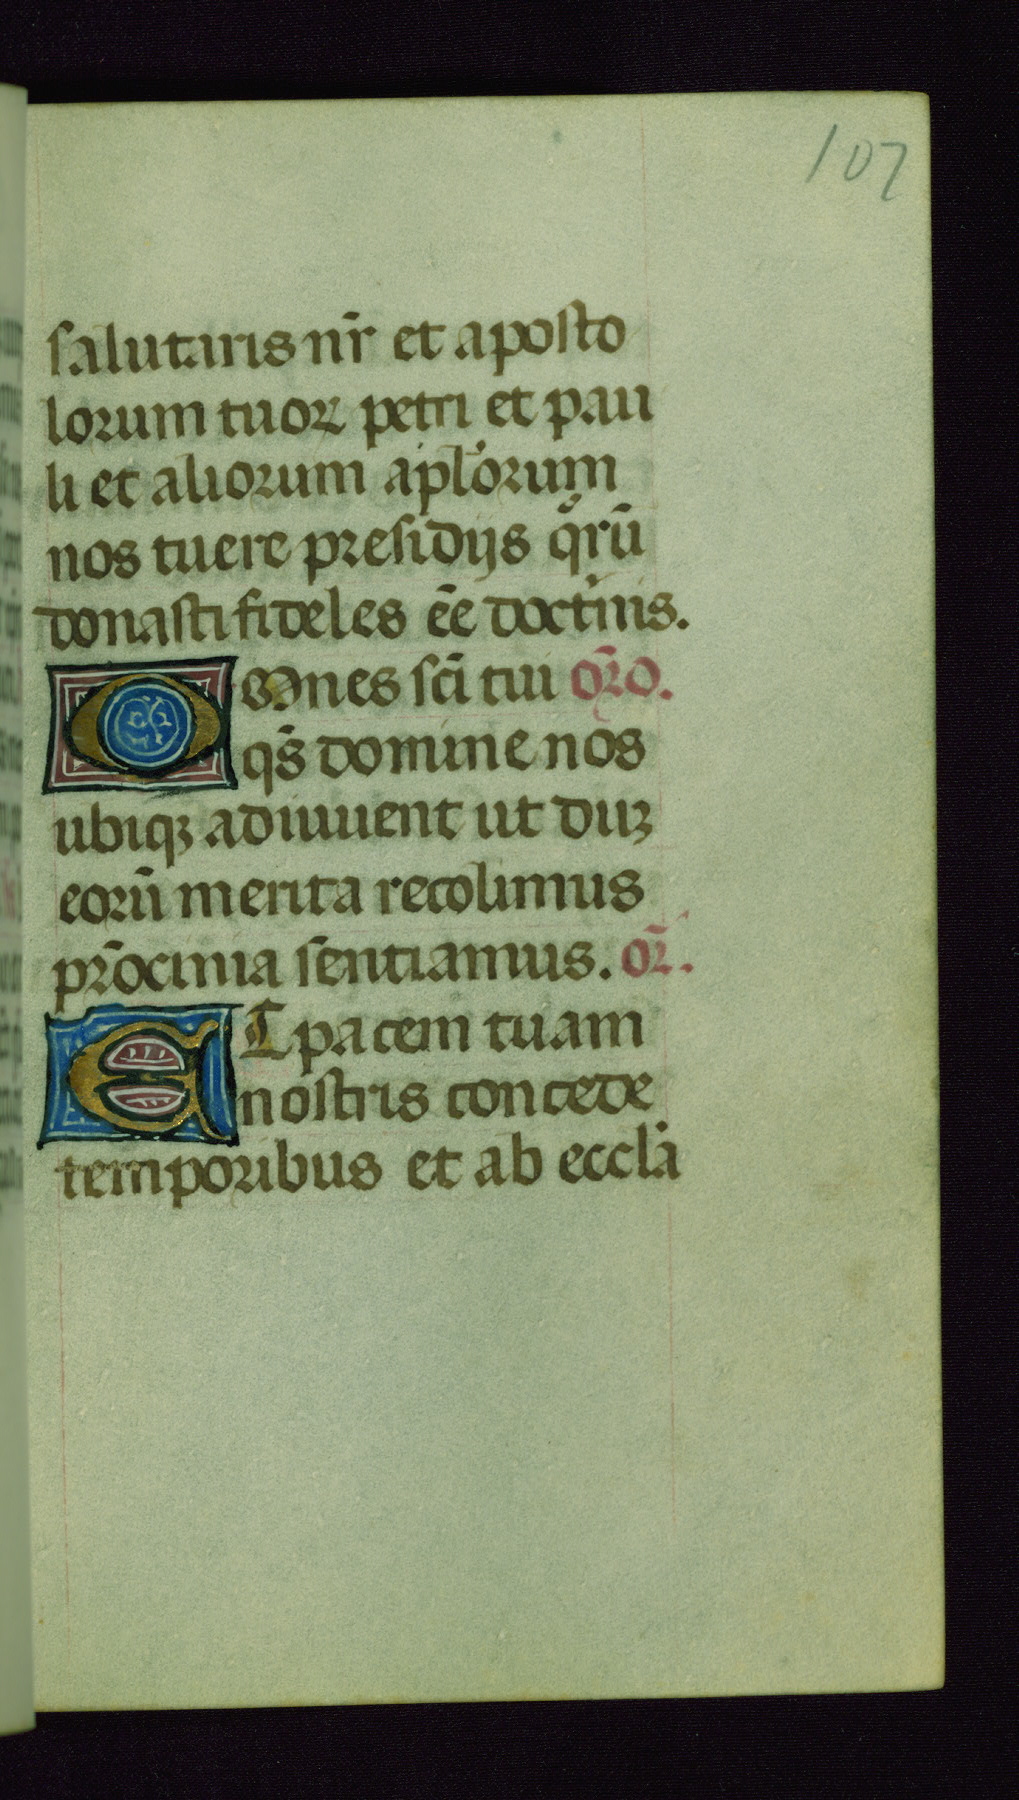 107
salutaris nr̄ et aposto
lorum tuoꝝ petri et pau
li et aliorum apl'orum
nos tuere presidijs qͦrū
donasti fideles ēe doctͥnis.
OMnes sc̄i tui or̄o.
qs̄ domine nos
ubiqꝫ adiuuent ut duꝫ
eorū merita recolimus
pr̄ocinia sentiamus. or̄.
ET pacem tuam
nostris concede
temporibus et ab eccl'a